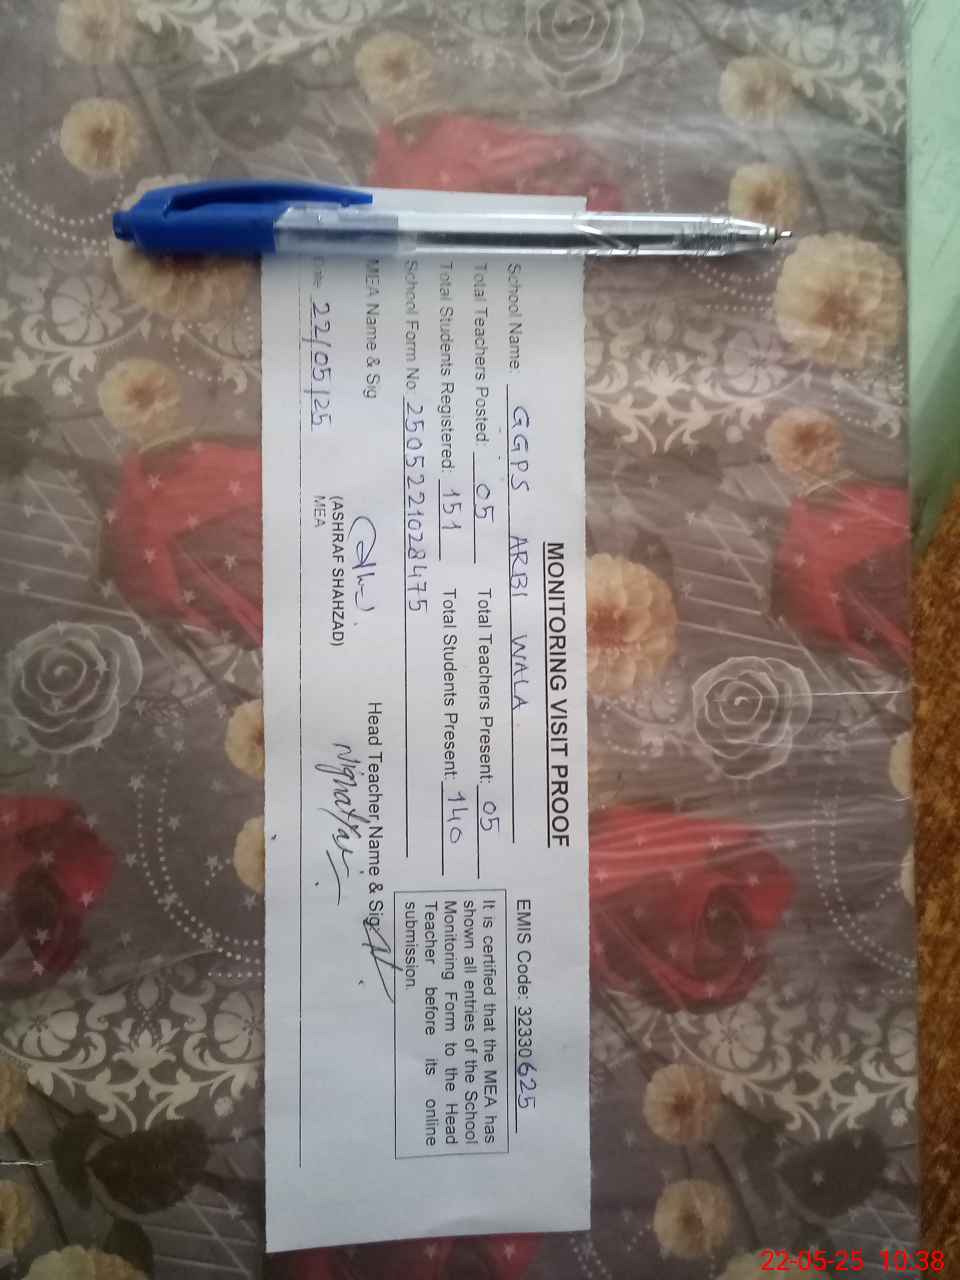 MONITORING VISIT PROOF
School Name: GGPS ARBI WALA EMIS Code: 32330625
Total Teachers Posted: 05 Total Teachers Present: 05
Total Students Registered: 151 Total Students Present: 140
School Form No: 2505221028475
It is certified that the MEA has
shown all entries of the School
Monitoring Form to the Head
Teacher before its online
submission.
MEA Name & Sig Head Teacher Name & Sig
(ASHRAF SHAHZAD)
MEA
Date 22/05/25
22-05-25 10:38